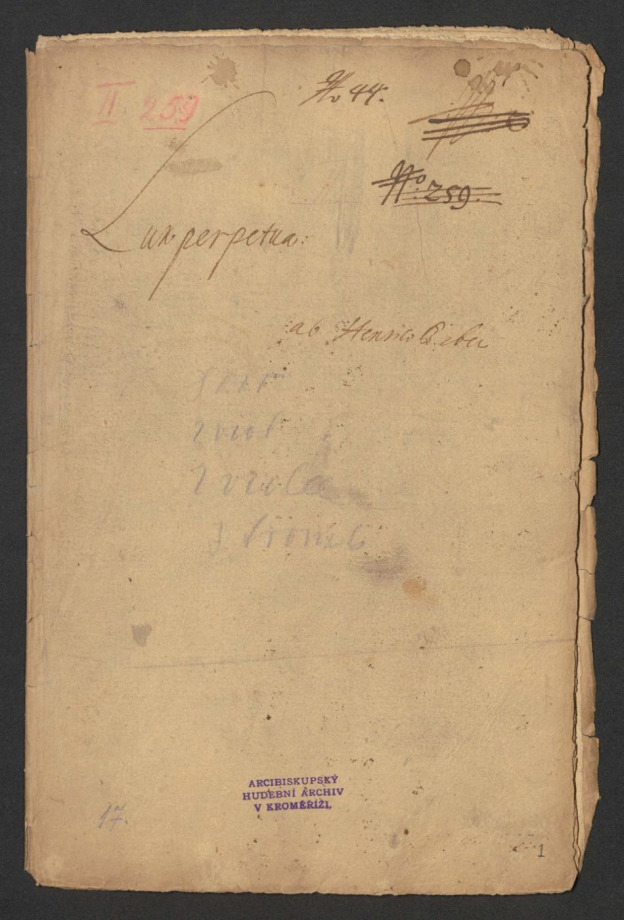 II 259
No 44.
No. 259.
Lux perpetua:
ab Henrico Biber
2 viol
2 viole
3 Tromb
ARCIBISKUPSKÝ
HUDEBNÍ ARCHIV
V KROMĚŘÍŽI.
17.
1